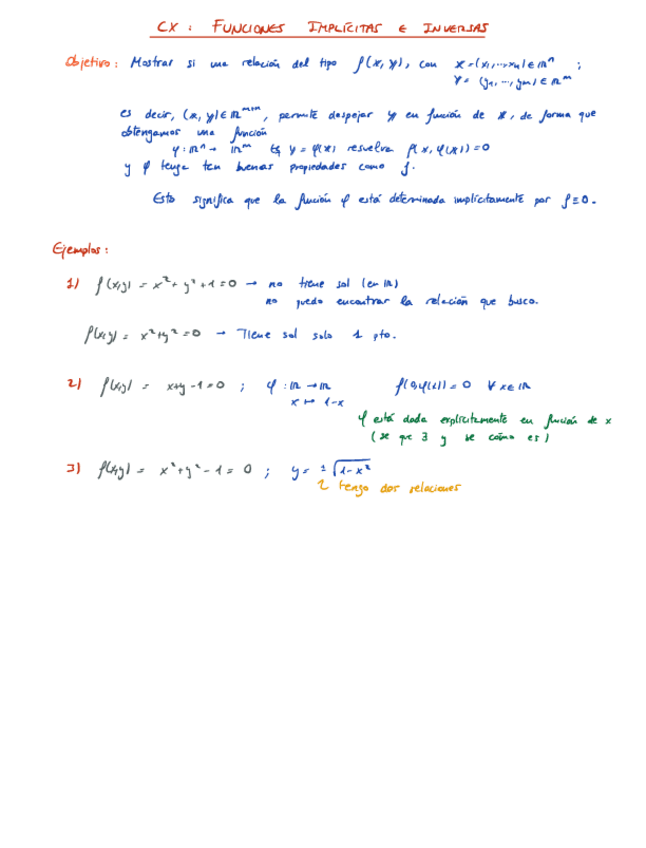 CX : FUNCIONES IMPLÍCITAS E INVERSAS
Objetivo: Mostrar si una relación del tipo f(x, y), con x = (x₁, ..., xₙ) ∈ ℝⁿ ;
y = (y₁, ..., yₘ) ∈ ℝᵐ
es decir, (x, y) ∈ ℝᵐ⁺ⁿ, permite despejar y en función de x, de forma que
obtengamos una función
φ : ℝⁿ → ℝᵐ tq y = φ(x) resuelva f(x, φ(x)) = 0
y φ tenga tan buenas propiedades como f.
Esto significa que la función φ está determinada implícitamente por f ≡ 0.
Ejemplos :
1) f(x,y) = x² + y² + 1 = 0 → no tiene sol (en ℝ)
no puedo encontrar la relación que busco.
f(x,y) = x² + y² = 0 → Tiene sol solo 1 pto.
2) f(x,y) = x+y -1 = 0 ; φ : ℝ → ℝ f(x, φ(x)) = 0 ∀ x ∈ ℝ
x ↦ 1-x
φ está dada explícitamente en función de x
(se que ∃ y se cómo es)
3) f(x,y) = x² + y² - 1 = 0 ; y = ± √1-x²
tengo dos relaciones